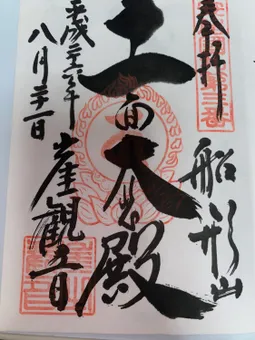 奉拝
船形山
十一面大悲殿
崖観音
平成二十六年
八月二十一日